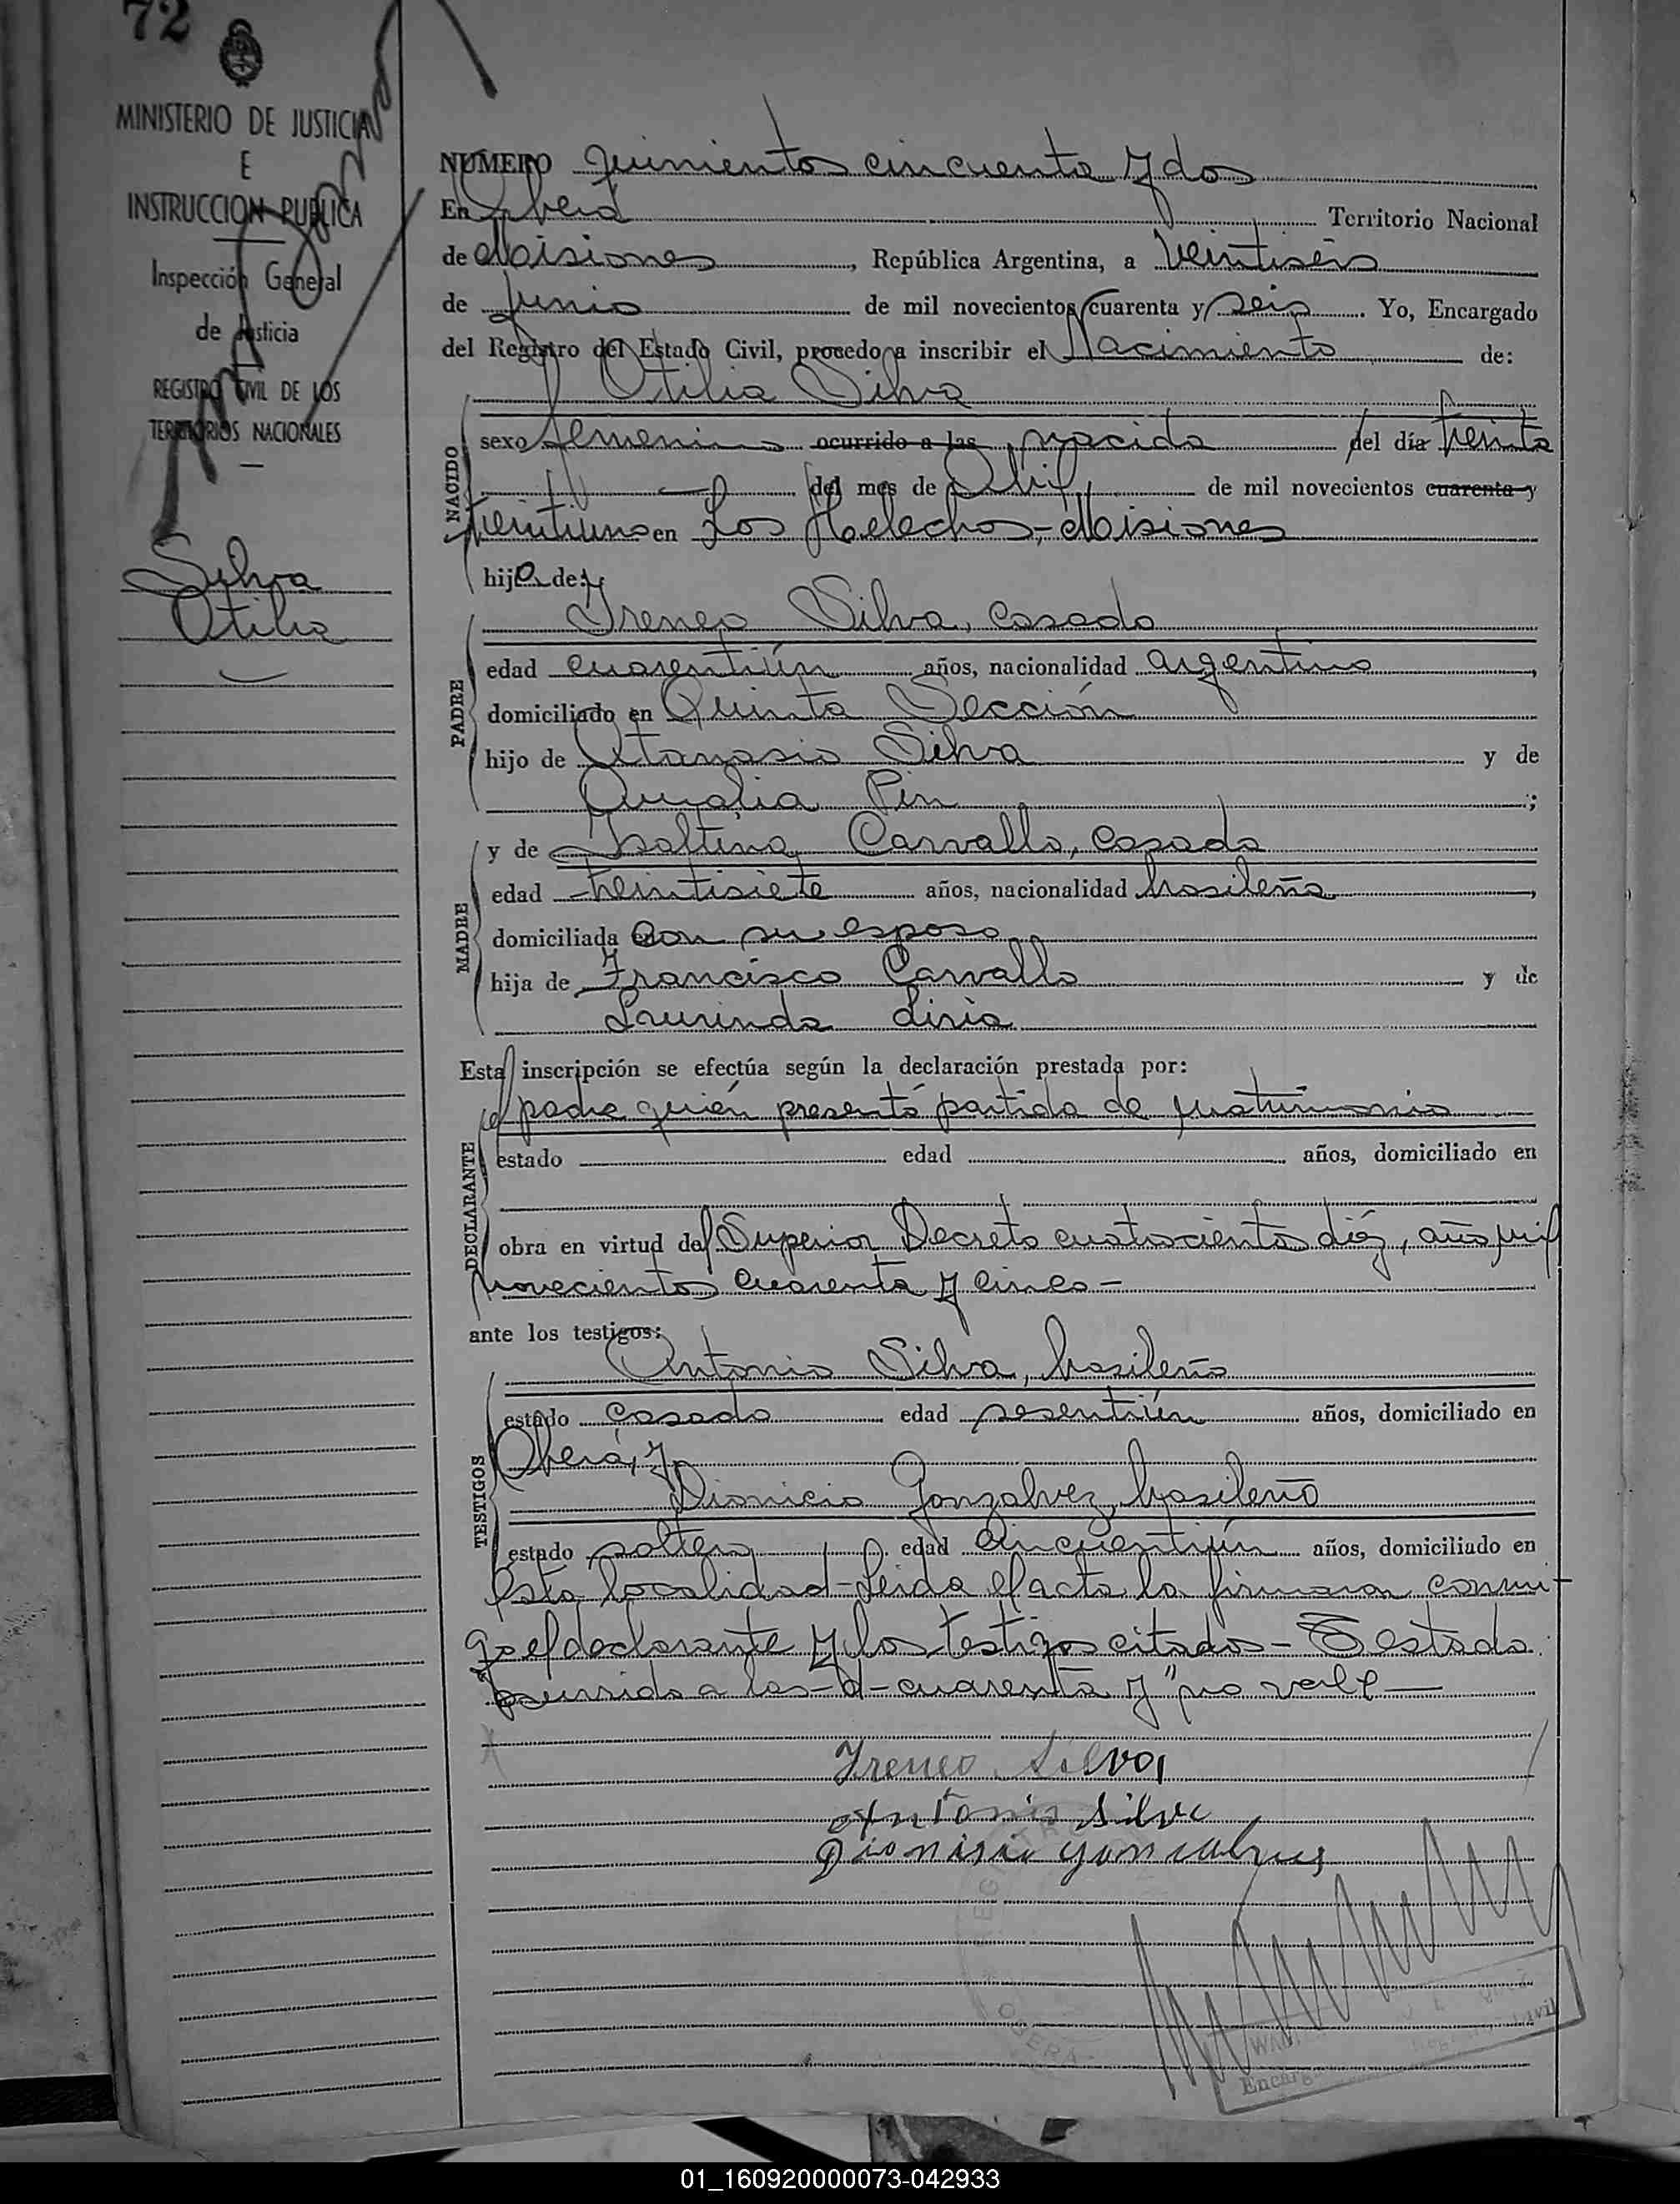 72
MINISTERIO DE JUSTICIA
E
INSTRUCCION PUBLICA
Inspección General
de Justicia
REGISTRO CIVIL DE LOS
TERRITORIOS NACIONALES
Silva
Otilia
NÚMERO quinientos cincuenta y dos
En Oberá Territorio Nacional
de Misiones, República Argentina, a veintiseis
de Junio de mil novecientos cuarenta y seis. Yo, Encargado
del Registro del Estado Civil, procedo a inscribir el Nacimiento de:
Otilia Silva
NACIDO
sexo femenino ocurrido a las, nacida del día treinta
del mes de Abril de mil novecientos cuarenta y
treintiuno en Los Helechos,-Misiones
hija de:
PADRE
Ireneo Silva, casado
edad cuarentiún años, nacionalidad argentino,
domiciliado en Quinta Sección
hijo de Atanasio Silva y de
Amalia Pin;
MADRE
y de Isaltina Carvallo, casada
edad treintisiete años, nacionalidad brasileña,
domiciliada con su esposo
hija de Francisco Carvallo y de
Laurinda Liria
Esta inscripción se efectúa según la declaración prestada por:
DECLARANTE
el padre quién presentó partida de matrimonio
estado edad años, domiciliado en
obra en virtud del Superior Decreto cuatrocientos diéz, año mil
novecientos cuarenta y cinco-
ante los testigos:
TESTIGOS
Antonio Silva, brasileño
estado casado edad sesentiún años, domiciliado en
Oberá, y
Dionicio Gonzalvez, brasileño
estado soltero edad cincuentiún años, domiciliado en
esta localidad-Leida el acta la firmaron conmi-
go el declarante y los testigos citados-Testado:
"ocurrido a las-d-cuarenta y" no vale—
Ireneo Silva
Antonio Silva
Dionisio Goncalves
OBERA
Encarg
01_160920000073-042933